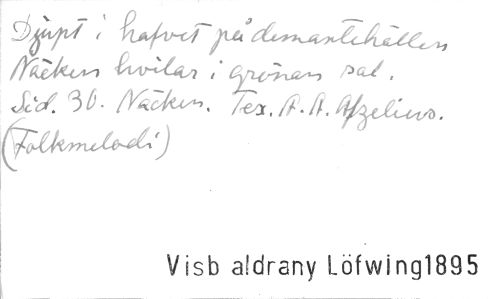 Djupt i hafvet på demantehällen
Näcken hvilar i grönan sal.
Sid. 30. Näcken. Tex. A. A. Afzelius.
(Folkmelodi)
Visb aldrany Löfwing1895